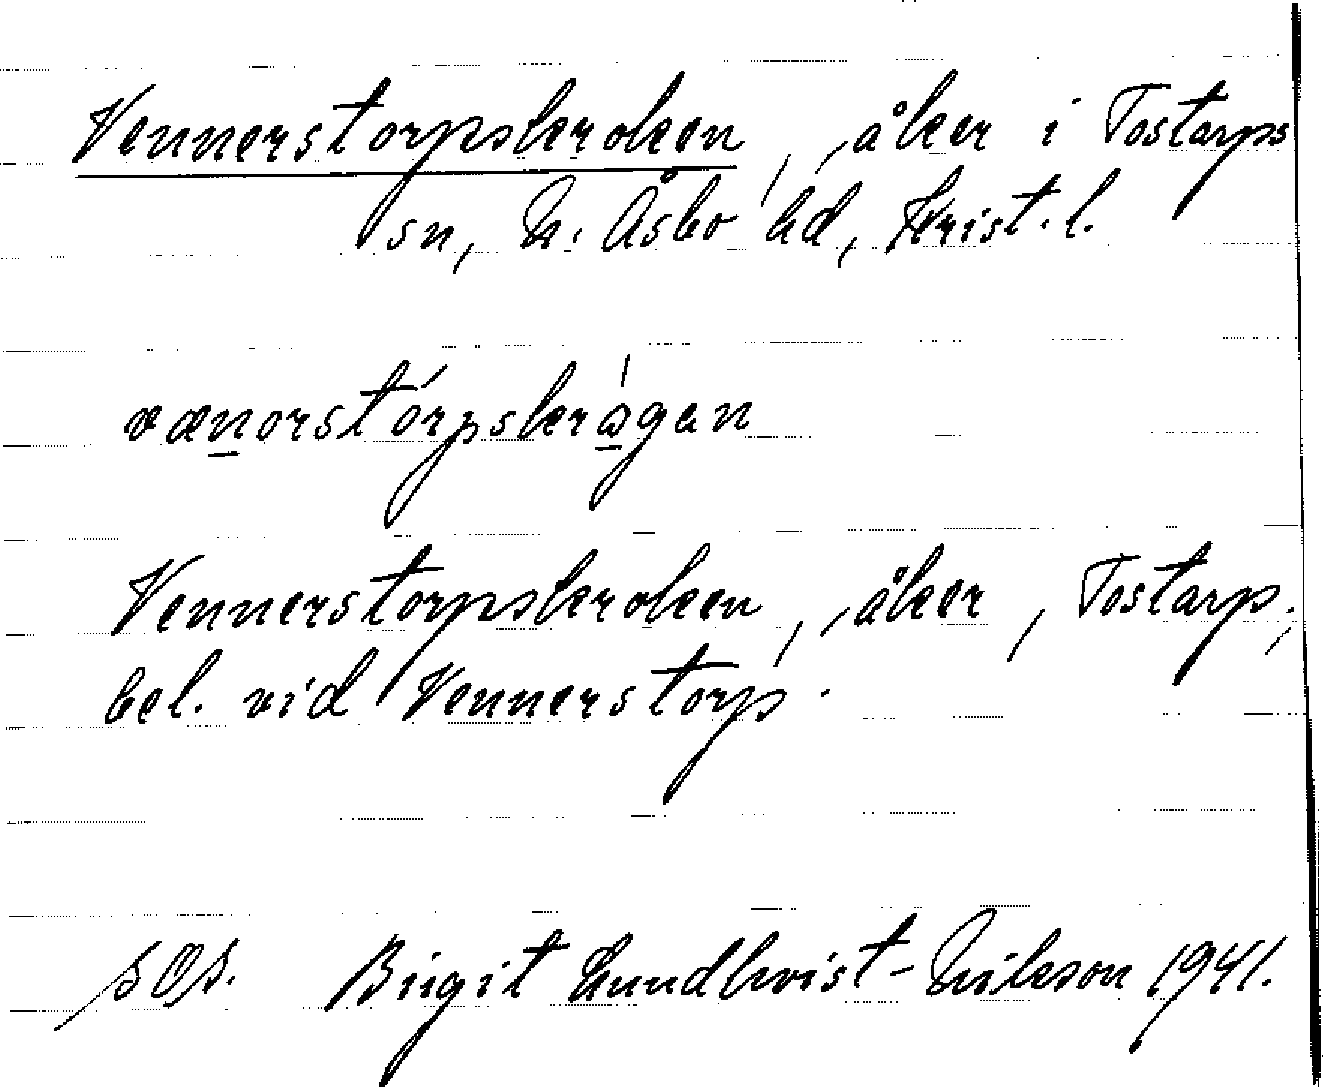 Vennerstorpskroken, åker i Tostarps
sn, N. Åsbo hd, Krist. l.
vænorstórpskrågen
Vennerstorpskroken, åker, Tostarp;
bel. vid Vennerstorp.
SOS. Birgit Lundkvist-Nilsson 1941.